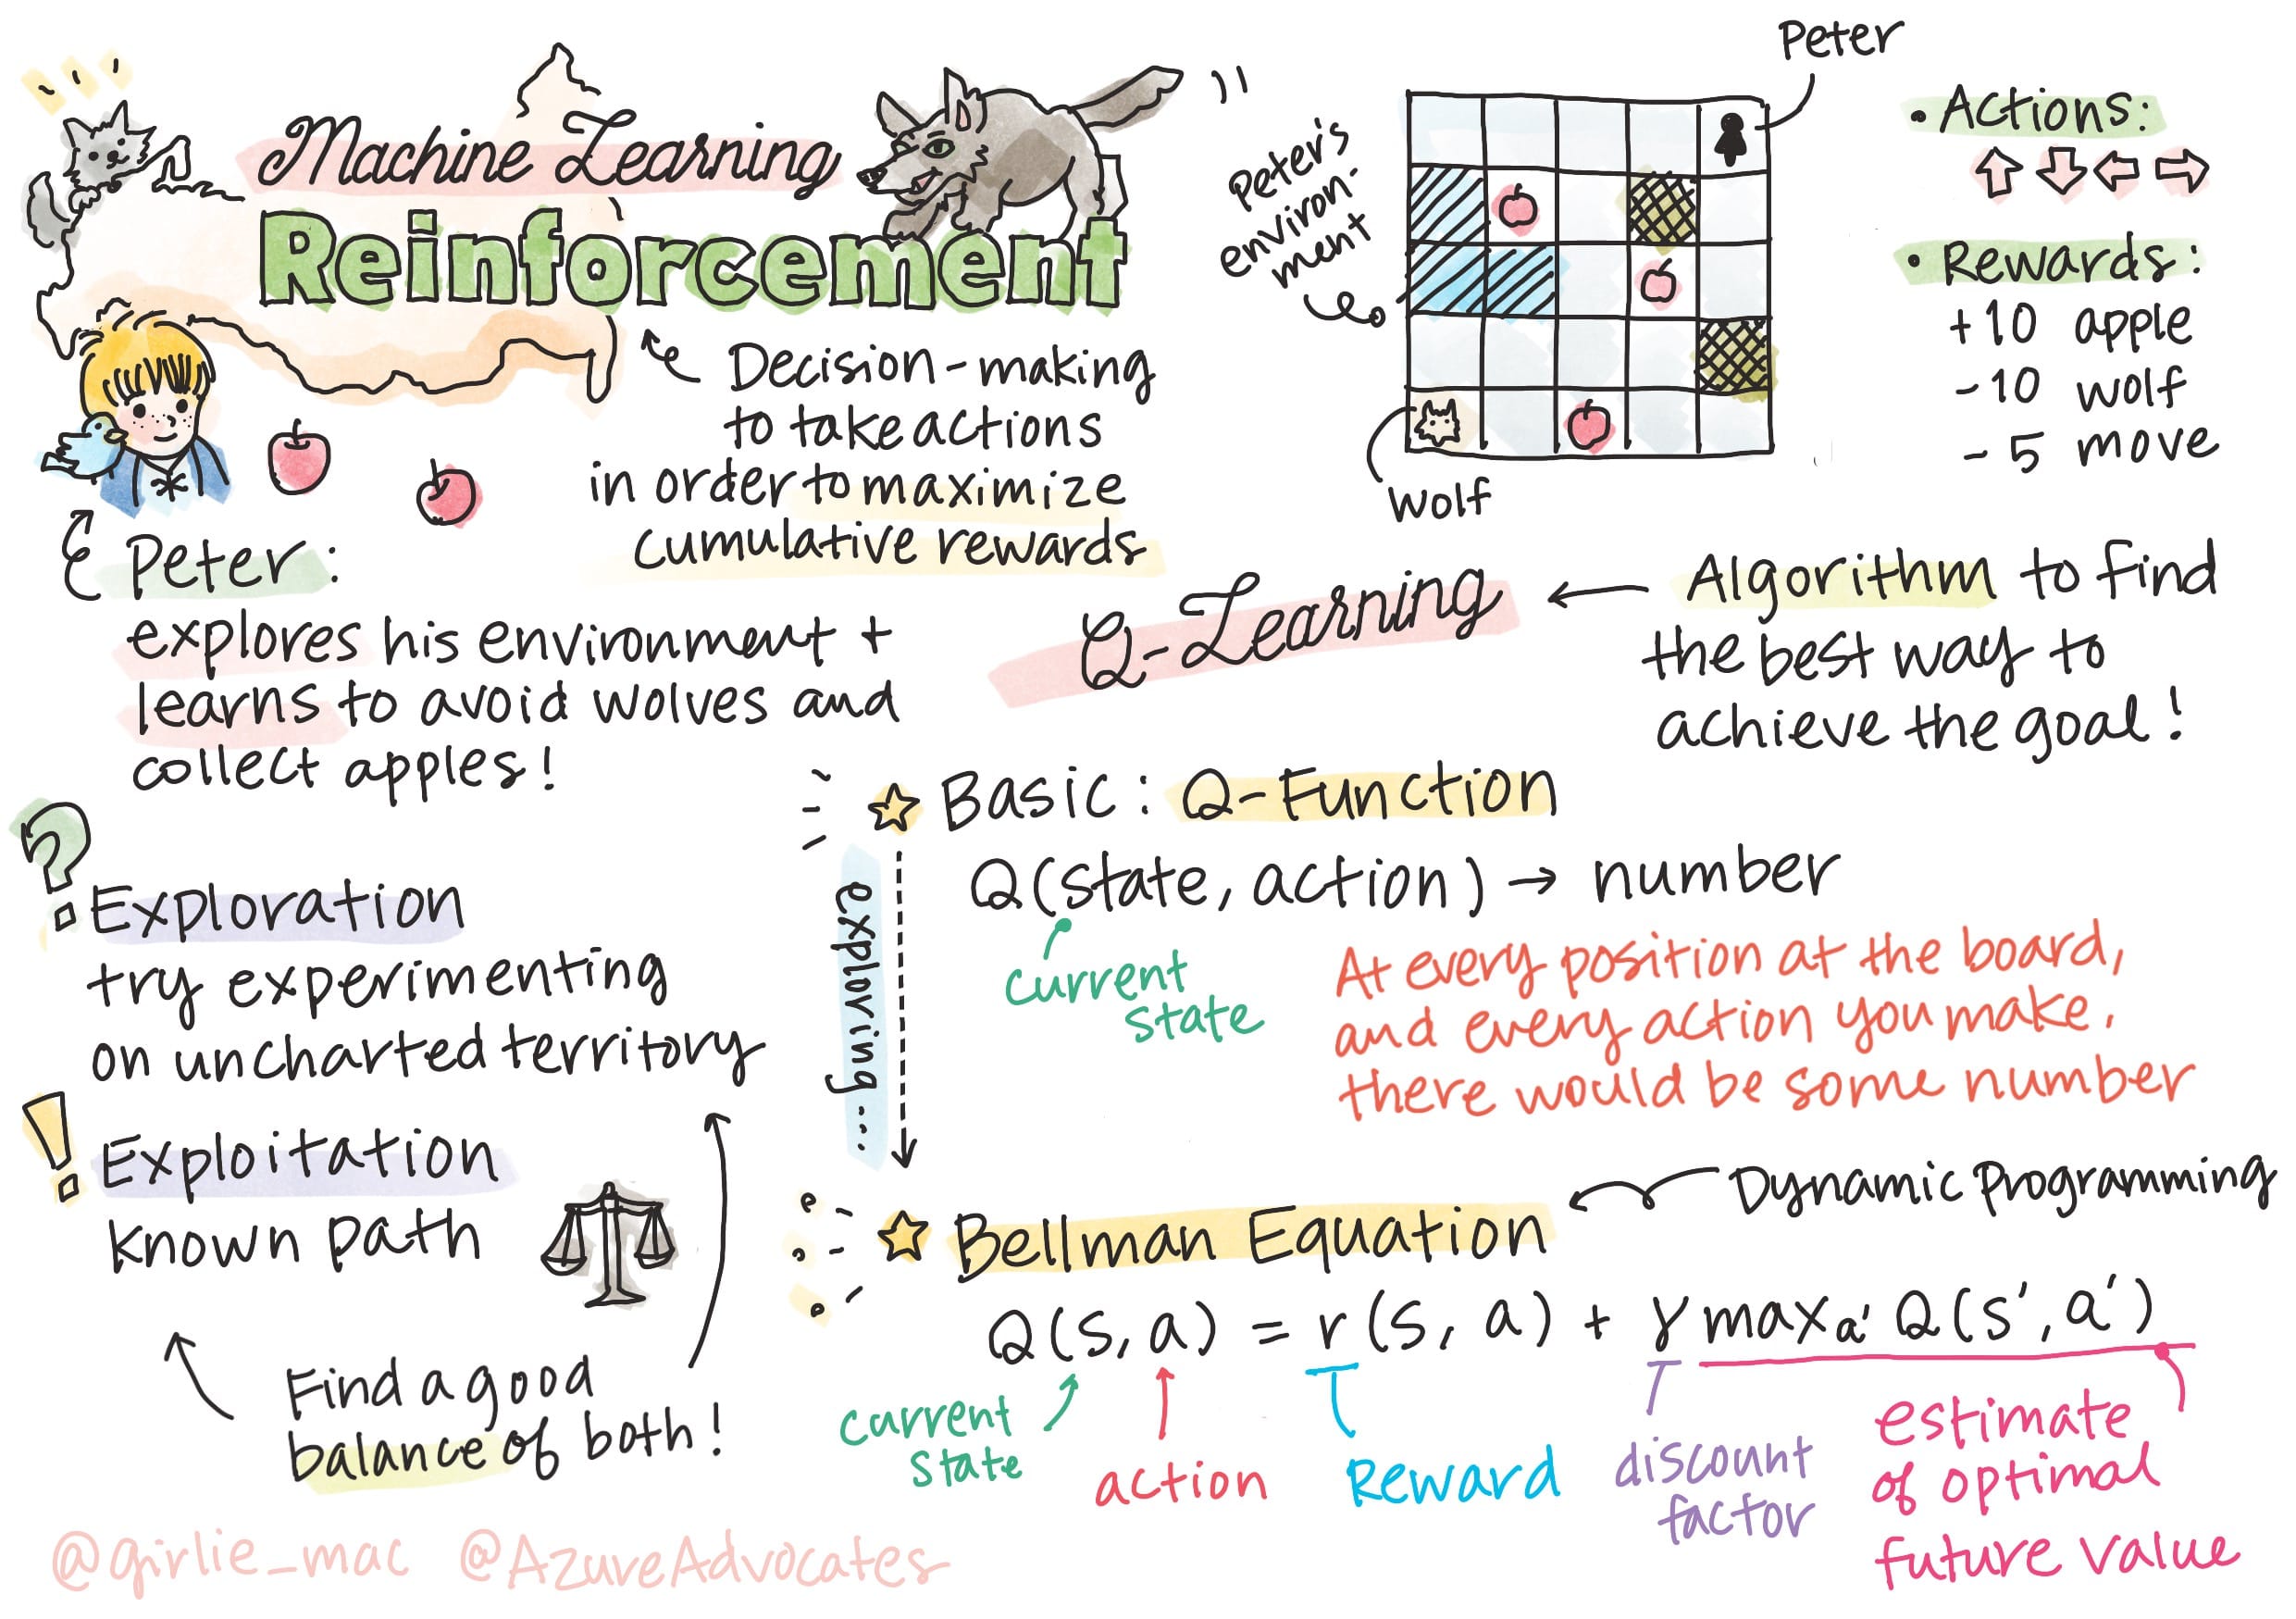 Machine Learning
Reinforcement
Decision-making
to take actions
in order to maximize
cumulative rewards
Peter:
explores his environment +
learns to avoid wolves and
collect apples!
Peter
Peter's
environ-
ment
Wolf
• Actions:
• Rewards:
+10 apple
-10 wolf
-5 move
Q-Learning
Algorithm to find
the best way to
achieve the goal!
? Exploration
try experimenting
on uncharted territory
! Exploitation
known path
Find a good
balance of both!
Basic: Q-Function
Q(state, action) → number
current
state
At every position at the board,
and every action you make,
there would be some number
exploring...
Bellman Equation
Dynamic Programming
Q(s, a) = r(s, a) + γ maxₐ' Q(s', a')
current
state
action
Reward
discount
factor
estimate
of optimal
future value
@girlie_mac @AzureAdvocates